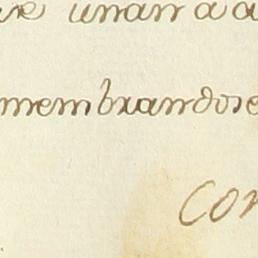 unan a a
membrandose
Con